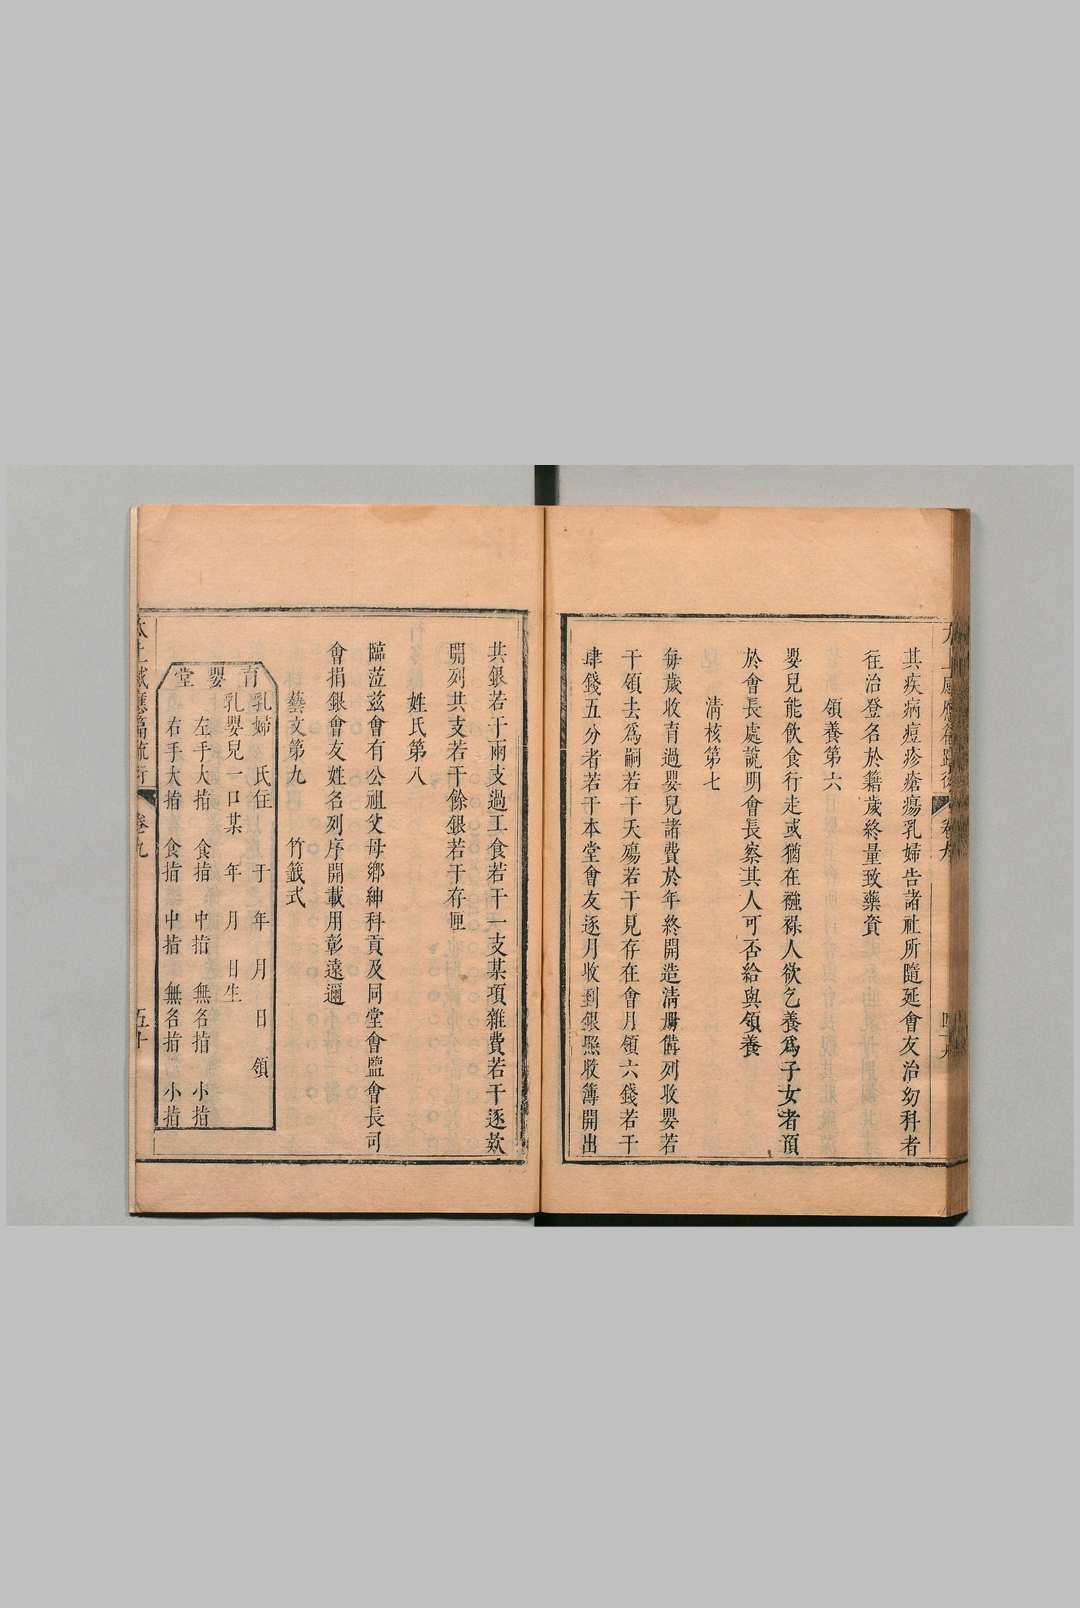 其疾病痘疹瘡瘍乳婦告諸社所隨延會友治幼科者
往治登名於籍歲終量致藥資
領養第六
嬰兒能飲食行走或猶在襁褓人欲乞養爲子女者須
於會長處說明會長察其人可否給與領養
清核第七
每歲收育過嬰兒諸費於年終開造清冊備列收嬰若
干領去爲嗣若干夭殤若干見存在會月領六錢若干
肆錢五分者若干本堂會友逐月收到銀照收簿開出
共銀若干兩支過工食若干一支某項雜費若干逐欵
開列共支若干餘銀若干存匣
姓氏第八
臨蒞茲會有公祖父母鄉紳科貢及同堂會盬會長司
會捐銀會友姓名列序開載用彰遠邇
藝文第九　竹籤式
育嬰堂
乳婦　氏任　于　年　月　日　領
乳嬰兒一口某　年　月　日生
左手大指　食指　中指　無名指　小指
右手大指　食指　中指　無名指　小指
太上感應篇疏衍　卷九　五十